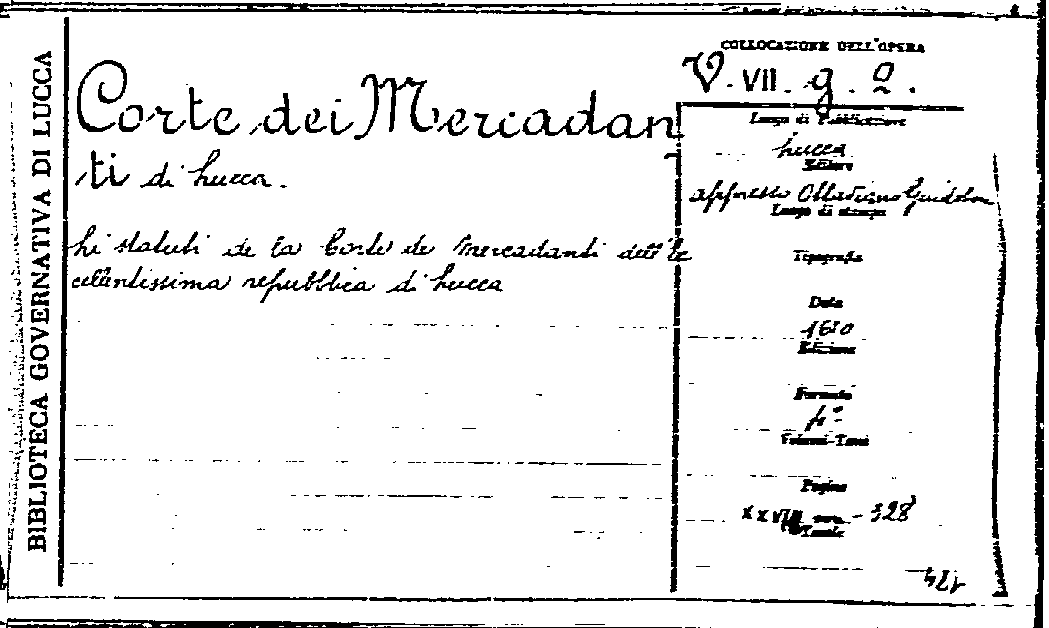 BIBLIOTECA GOVERNATIVA DI LUCCA
Corte dei Mercadan
ti di Lucca.
Li statuti de la Corte de Mercadanti dell'Ec
cellentissima repubblica di Lucca
COLLOCAZIONE DELL'OPERA
V. VII. g. 2.
Luogo di Pubblicazione
Lucca
Editore
appresso Ottaviano Guidobon
Luogo di stampa
Tipografia
Data
1610
Edizione
Formato
4°
Volumi-Tomi
Pagine
XXVIII - 328
Tavole